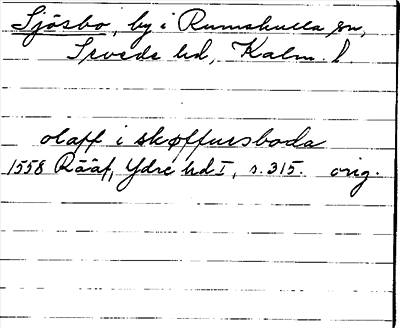 Sjösbo, by i Rumskulla sn,
Sevede hd, Kalm. l.
olaff i skøffuersboda
1558 Rääf, Ydre hd I, s. 315. orig.